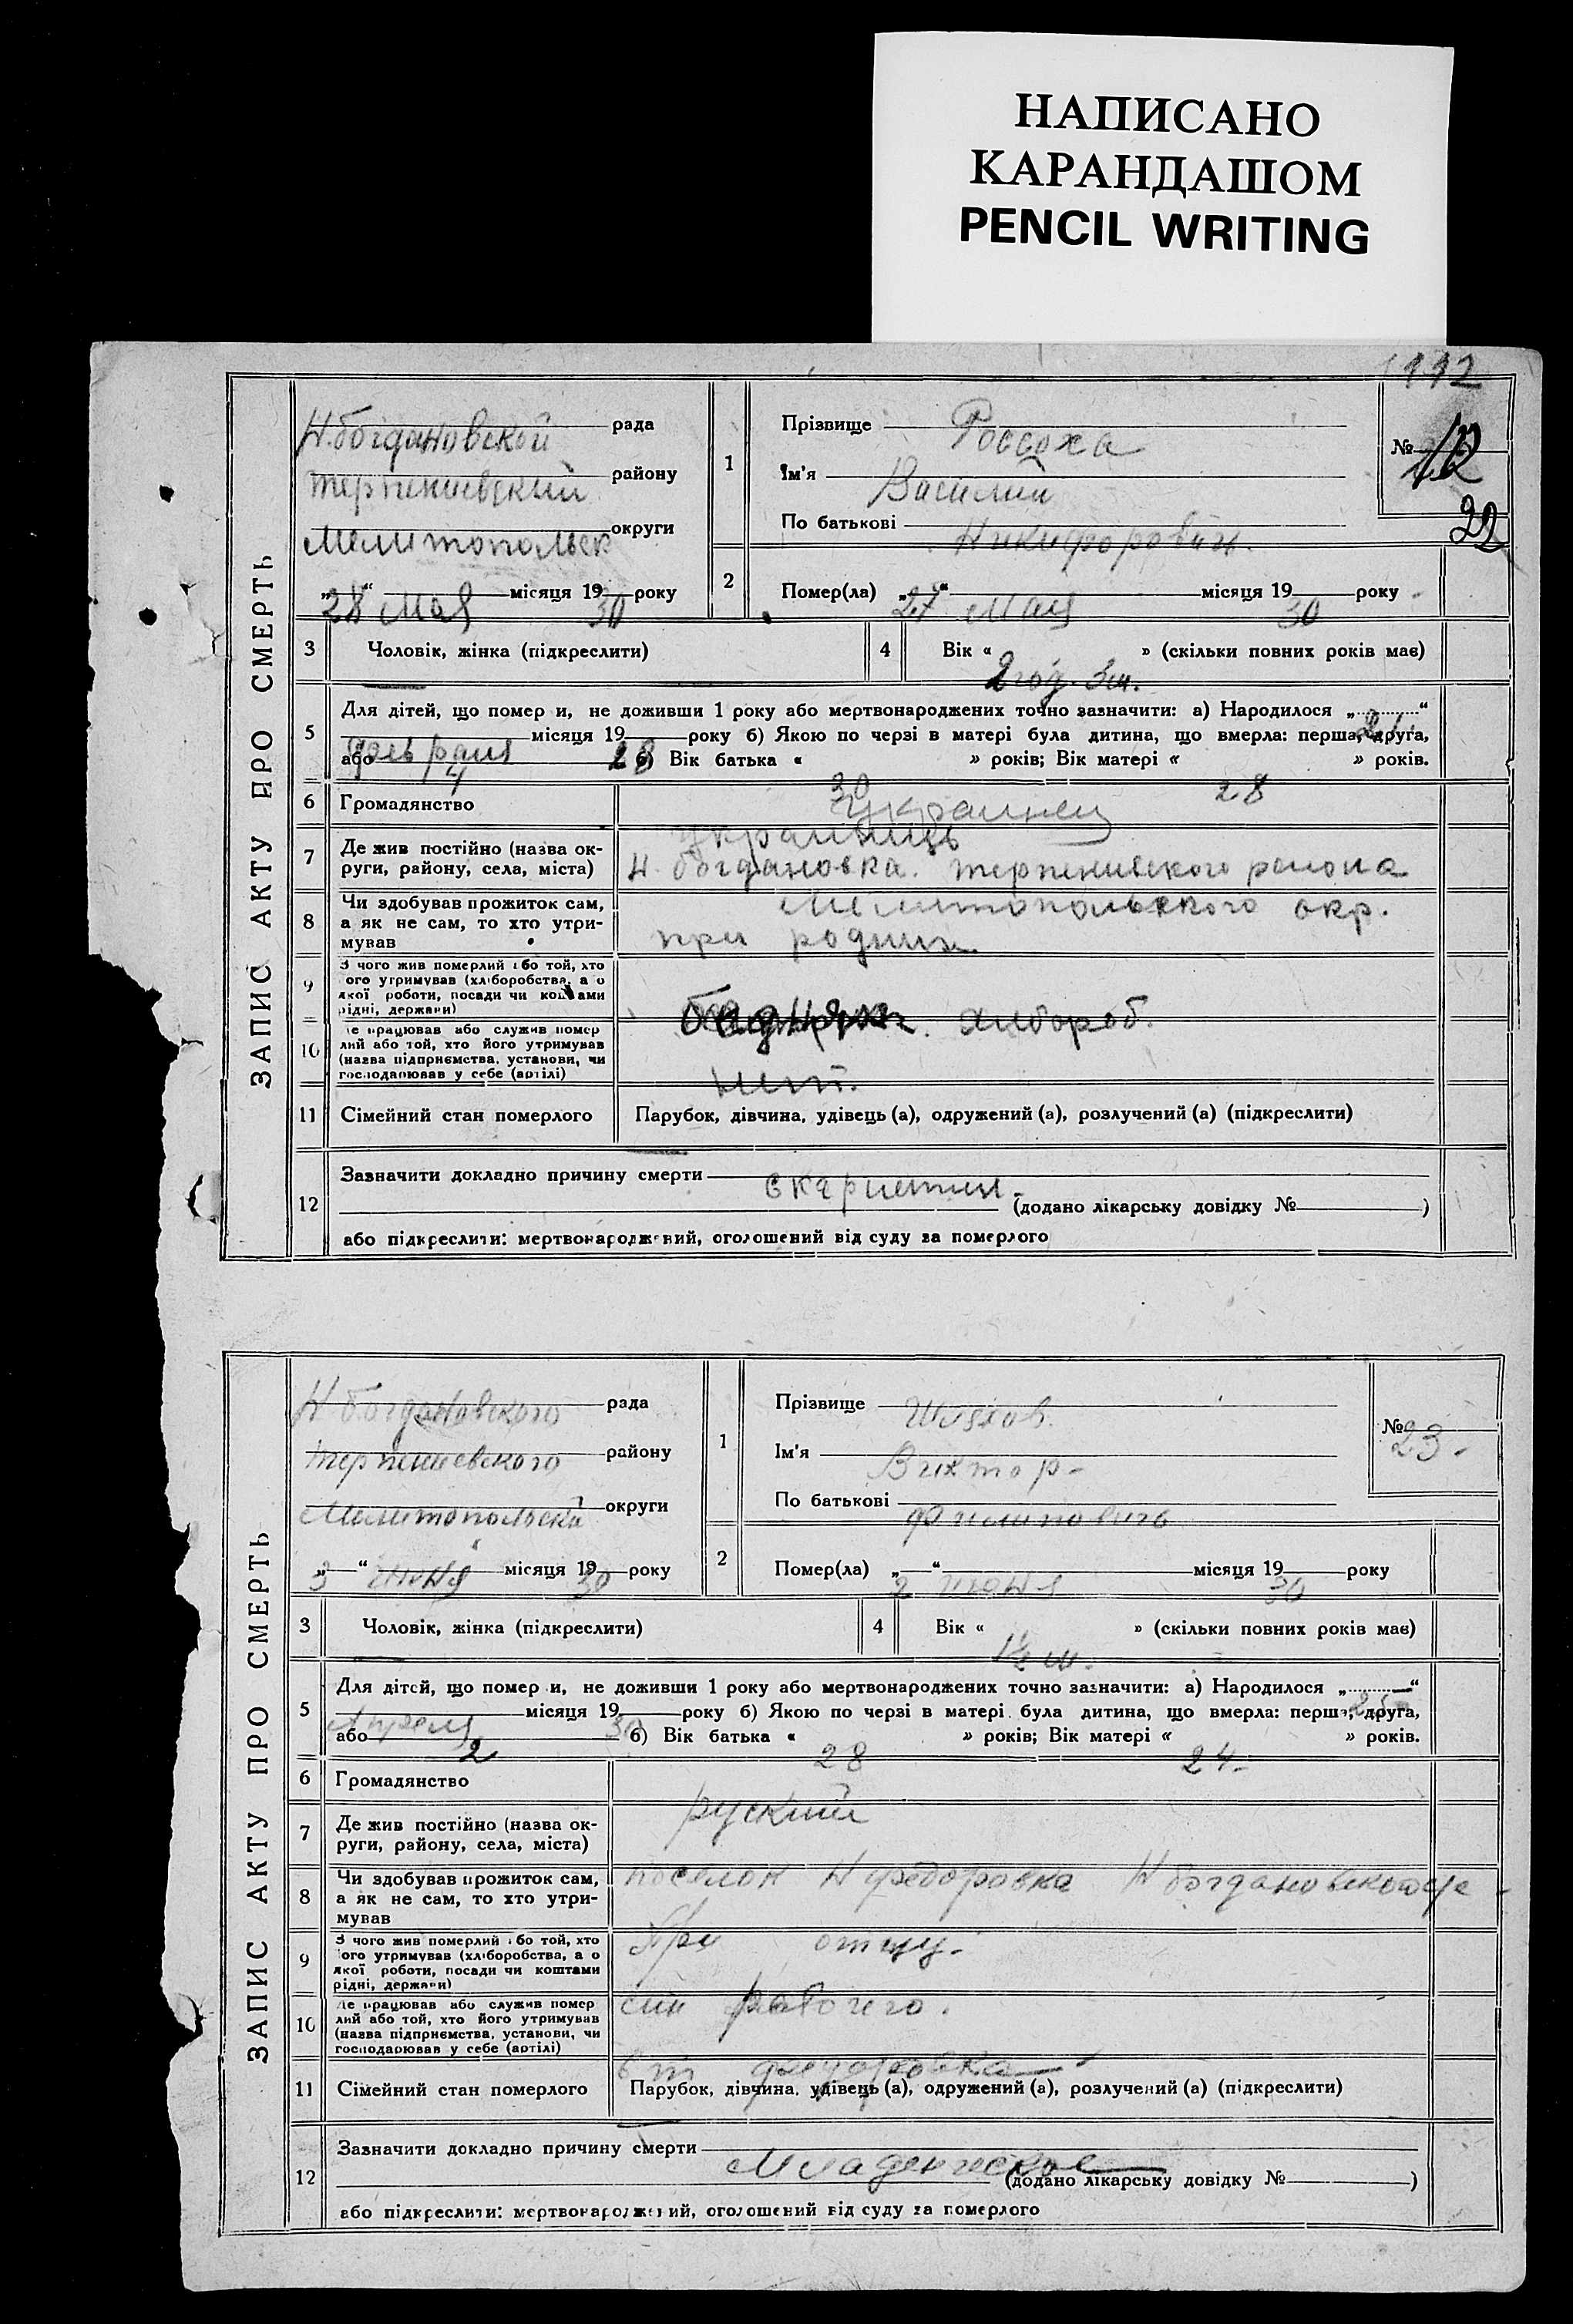 НАПИСАНО
КАРАНДАШОМ
PENCIL WRITING
132
ЗАПИС АКТУ ПРО СМЕРТЬ
Н.богдановской рада
терпениевский району
Мелитопольск округи
„28“ Мая місяця 1930 року
1
Прізвище Россоха
Ім'я Василий
По батькові Никифорович.
№ 12
22
2
Помер(ла) „27“ Мая місяця 1930 року
3 Чоловік, жінка (підкреслити)
4 Вік « 2 год. 3 м. » (скільки повних років має)
5 Для дітей, що помер и, не доживши 1 року або мертвонароджених точно зазначити: а) Народилося „ “
февраля місяця 1928 року б) Якою по черзі в матері була дитина, що вмерла: перша, друга,
або 4 в) Вік батька « 30 » років; Вік матері « 28 » років.
6 Громадянство Украинец
українець
7 Де жив постійно (назва ок-
руги, району, села, міста) Н. богдановка. терпениевского района
Мелитопольского окр.
8 Чи здобував прожиток сам,
а як не сам, то хто утри-
мував при родных
9 З чого жив померлий або той, хто
ого утримував (хліборобства, а о
якої роботи, посади чи коштами
рідні, держави) хлибороб.
10 Де працював або служив помер
лий або той, хто його утримував
(назва підприємства, установи, чи
господарював у себе (артілі) нет.
11 Сімейний стан померлого Парубок, дівчина, удівець (а), одружений (а), розлучений (а) (підкреслити)
12 Зазначити докладно причину смерти скарлетин
(додано лікарську довідку № )
або підкреслити: мертвонароджений, оголошений від суду за померлого
ЗАПИС АКТУ ПРО СМЕРТЬ
Н богдановского рада
терпениевского району
Мелитопольской округи
„3“ июня місяця 1930 року
1
Прізвище Шляхов.
Ім'я Виктор-
По батькові Филипович
№ 23-
2
Помер(ла) „2“ июня місяця 1930 року
3 Чоловік, жінка (підкреслити)
4 Вік « 1½ м. » (скільки повних років має)
5 Для дітей, що помер и, не доживши 1 року або мертвонароджених точно зазначити: а) Народилося „ “
Апреля місяця 1930 року б) Якою по черзі в матері була дитина, що вмерла: перша, друга,
або 2 в) Вік батька « 28 » років; Вік матері « 24- » років.
6 Громадянство
руский
7 Де жив постійно (назва ок-
руги, району, села, міста)
поселок Н федоровка Н богдановского
8 Чи здобував прожиток сам,
а як не сам, то хто утри-
мував
При отцу-
9 З чого жив померлий або той, хто
ого утримував (хліборобства, а о
якої роботи, посади чи коштами
рідні, держави)
син рабочего.
10 Де працював або служив помер
лий або той, хто його утримував
(назва підприємства, установи, чи
господарював у себе (артілі)
федоровка
11 Сімейний стан померлого Парубок, дівчина, удівець (а), одружений (а), розлучений (а) (підкреслити)
12 Зазначити докладно причину смерти Младенческое
(додано лікарську довідку № )
або підкреслити: мертвонароджений, оголошений від суду за померлого